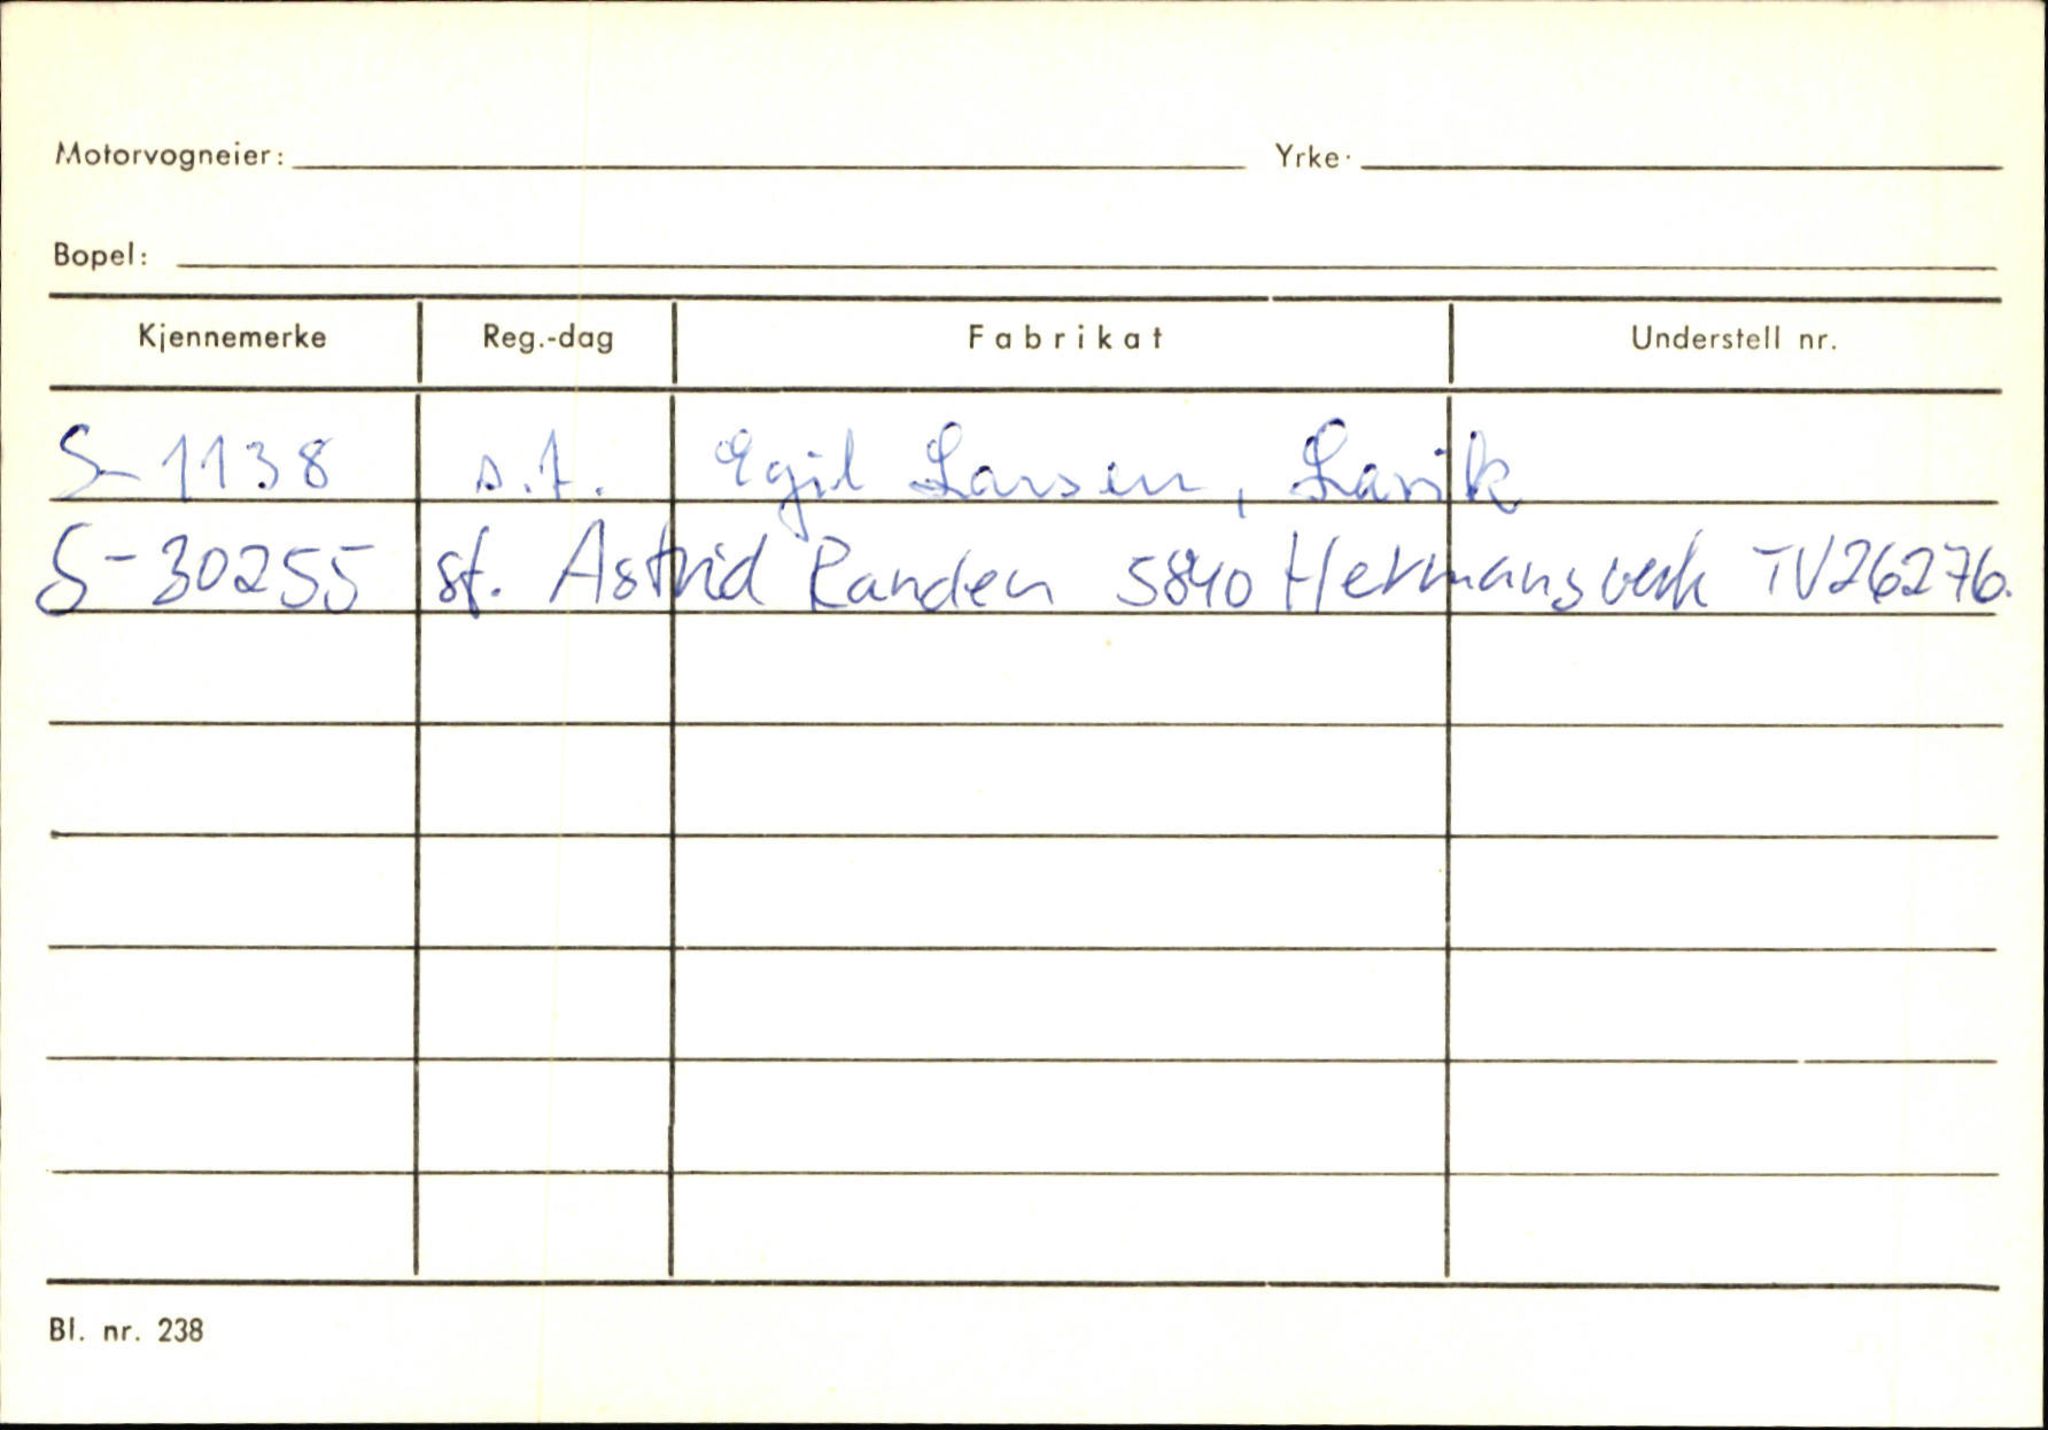 Motorvogneier: Yrke:
Bopel:
Kjennemerke Reg.-dag Fabrikat Understell nr.
S-1138 s.t. Egil Larsen, Larvik
S-30255 st. Astrid Randen 5840 Hermansverk TV26276.
Bl. nr. 238